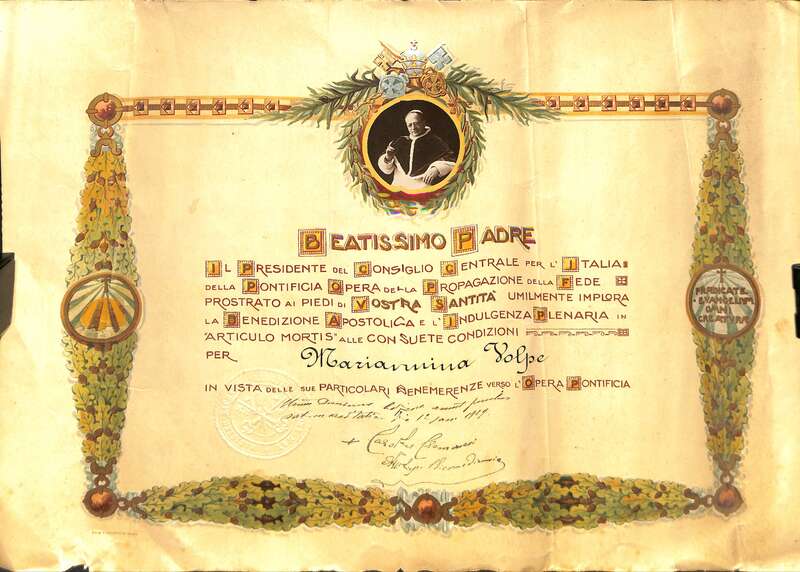 BEATISSIMO PADRE
IL PRESIDENTE DEL CONSIGLIO CENTRALE PER L'ITALIA
DELLA PONTIFICIA OPERA DELLA PROPAGAZIONE DELLA FEDE
PROSTRATO AI PIEDI DI VOSTRA SANTITA' UMILMENTE IMPLORA
LA BENEDIZIONE APOSTOLICA E L'INDULGENZA PLENARIA IN
"ARTICULO MORTIS" ALLE CONSUETE CONDIZIONI
PER Mariannina Volpe
IN VISTA DELLE SUE PARTICOLARI BENEMERENZE VERSO L'OPERA PONTIFICIA
PRÆDICATE
EVANGELIUM
OMNI
CREATURÆ